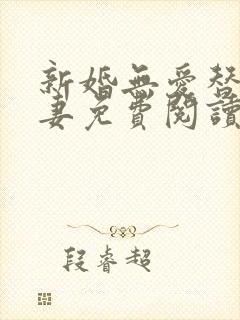 新婚無愛替
妻免費閱讀
段睿超